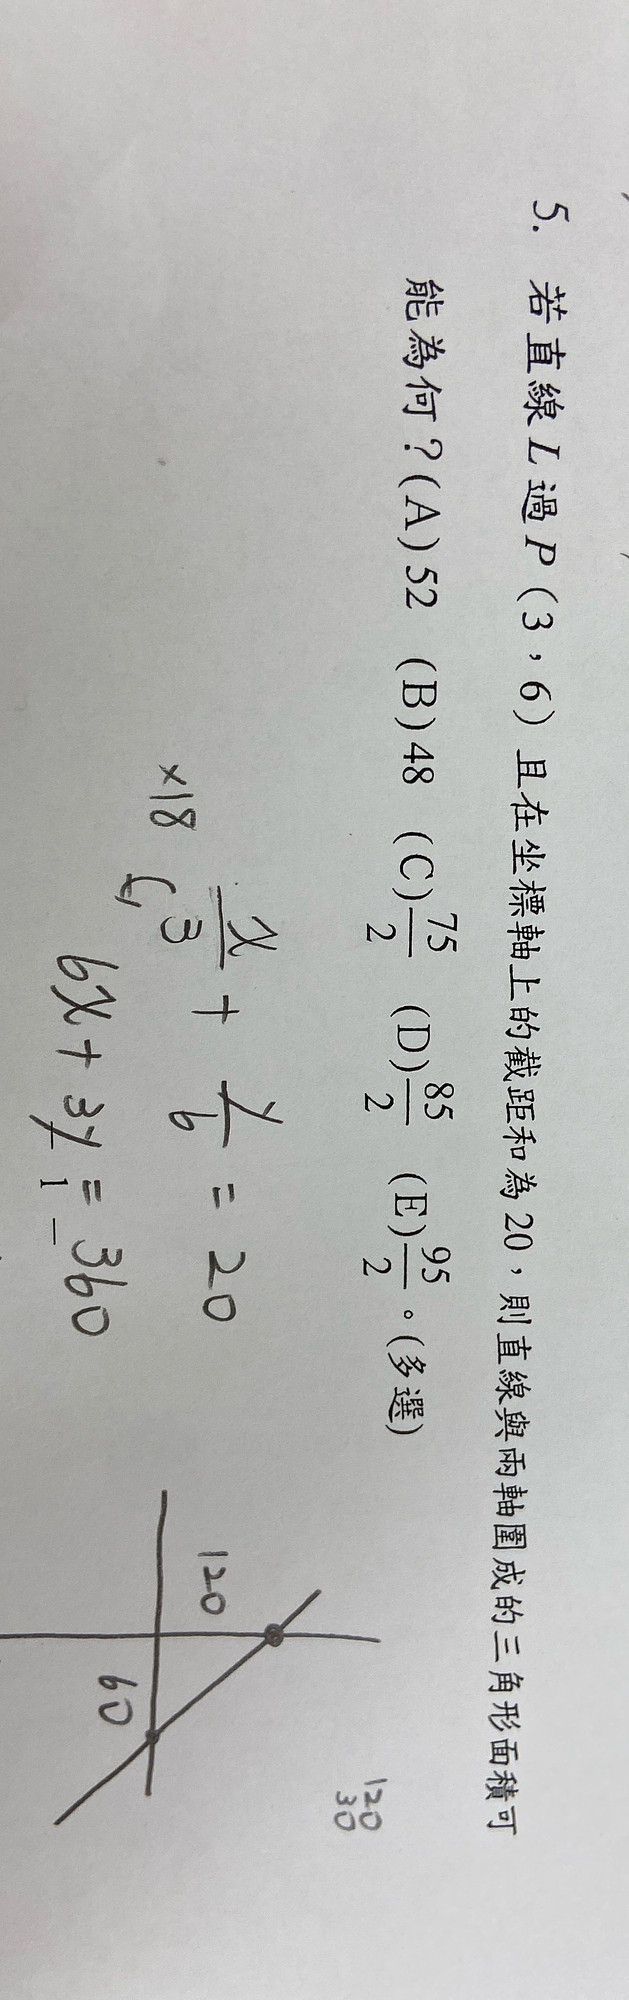 5. 若直線L過P(3,6)且在坐標軸上的截距和為20,則直線與兩軸圍成的三角形面積可
能為何?(A)52 (B)48 (C)75/2 (D)85/2 (E)95/2。(多選)
x/3 + y/6 = 20
×18
6x + 3y = 360
1
120
60
120
30